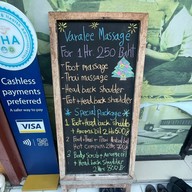 HA
Cashless
payments
preferred
A safer way to pay
VISA
Varalee Massage
For 1 Hr 250 Baht
- Foot massage
- Thai massage
- Head back shoulder
- Foot + Head back shoulder
Special Package
1 Foot + Head back shoulder
+ Aroma oil 2 Hr 500 ฿
2
Hot Compress 2 Hr
3 Body Scrub + Aroma oil
+ Head back Shoulder
2 Hr